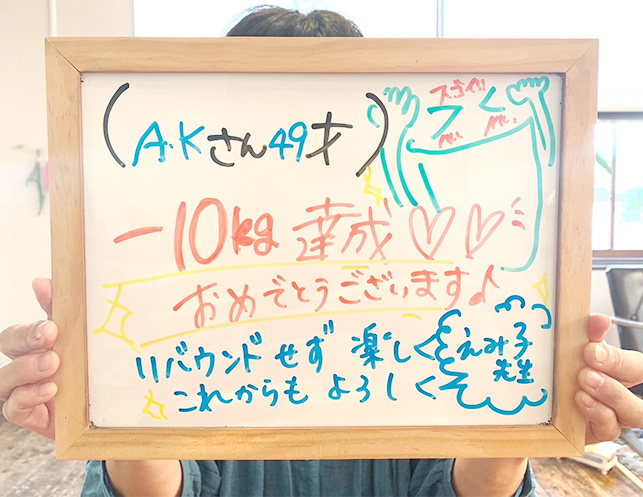 スゴイ!!
(A.Kさん49才)
ー10kg 達成♡♡
おめでとうございます♪
リバウンドせず 楽しく
これからも よろしく
えみ子
先生